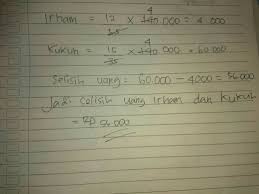 4
Irham = 12 × 140.000 = 4.000
35
4
Kukuh = 15 × 140.000 = 60.000
35
Selisih uang = 60.000 - 4000 = 56.000
Jadi Selisih uang Irham dan Kukuh
= Rp 56.000